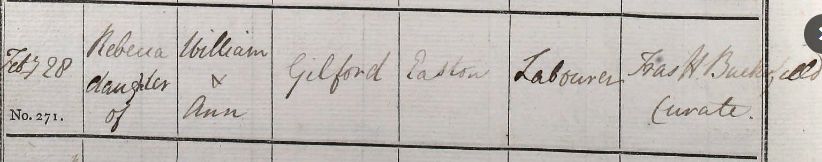 Feby 28
No. 271.
Rebecca
daughter
of
William
&
Ann
Gilford
Easton
Labourer
Fras H. Buckerfield
Curate.